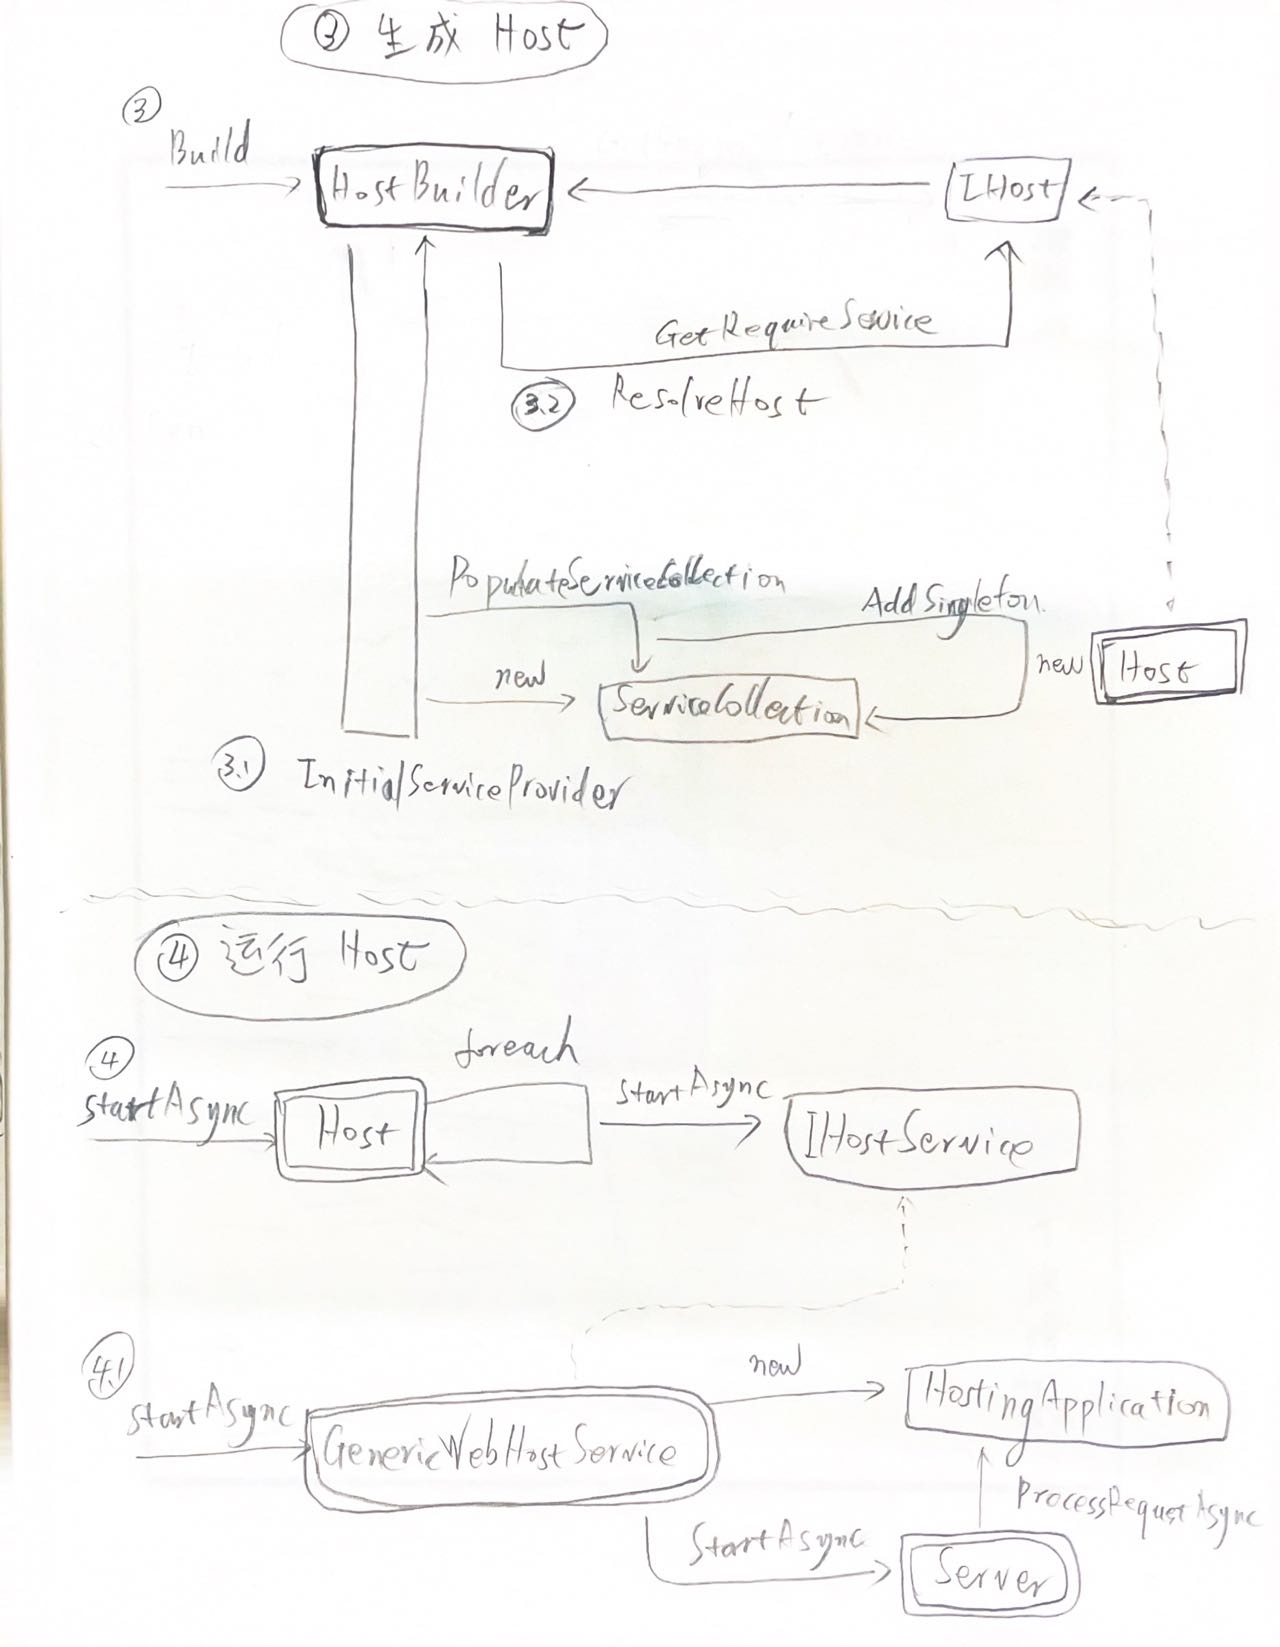 ③ 生成 Host
③
Build
HostBuilder
IHost
GetRequireService
3.2 ResolveHost
PopulateServiceCollection
AddSingleton
new
ServiceCollection
new
Host
3.1 InitialServiceProvider
④ 运行 Host
④
foreach
StartAsync
Host
StartAsync
IHostService
4.1
StartAsync
GenericWebHostService
new
HostingApplication
ProcessRequestAsync
StartAsync
Server